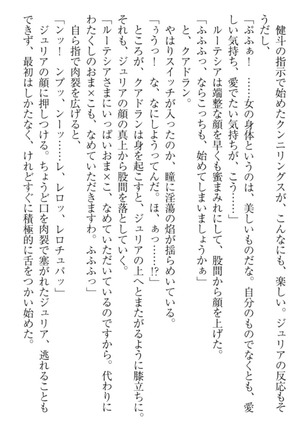 健斗の指示で始めたクンニリングスが、こんなにも、楽しい。ジュリアの反応もそ
うだし、
「ぷふぁ！　……女の身体というのは、美しいものだな。自分のものでなくとも、愛
しい気持ち、愛でたい気持ちが、こう……」
「ふふふっ、ならこっちも、始めてしまいましょうかぁ」
ルーテシアは端整な顔を早くも蜜まみれにして、股間から顔を上げた。
「く、クアドラン。ほ、ほう……」
やはりスイッチが入ったのか、瞳に淫蕩の焰が揺らめいている。
「ぅうっ！　な、なにしようってんだ。ほ、ぁっ……!?」
ところが、クアドランは身を起こすと、ジュリアの上へとまたがるように膝立ちに。
それも、ジュリアの顔の真上から股間を落としていく。
「ルーテシアさまにいっぱいおま×こ、なめていただいているのですから。代わりに
わたくしのおま×こも、なめていただきますわ。ふふふっ」
自ら指で肉裂を広げると、
「ンッ！　ンプッ、ンーッ……レ、レロッ、レロチュパッ」
ジュリアの顔に押しつける。ちょうど口を肉裂で塞がれたジュリア、逃れることも
できず、最初はしかたなく、けれどすぐに積極的に舌をつかい始めた。